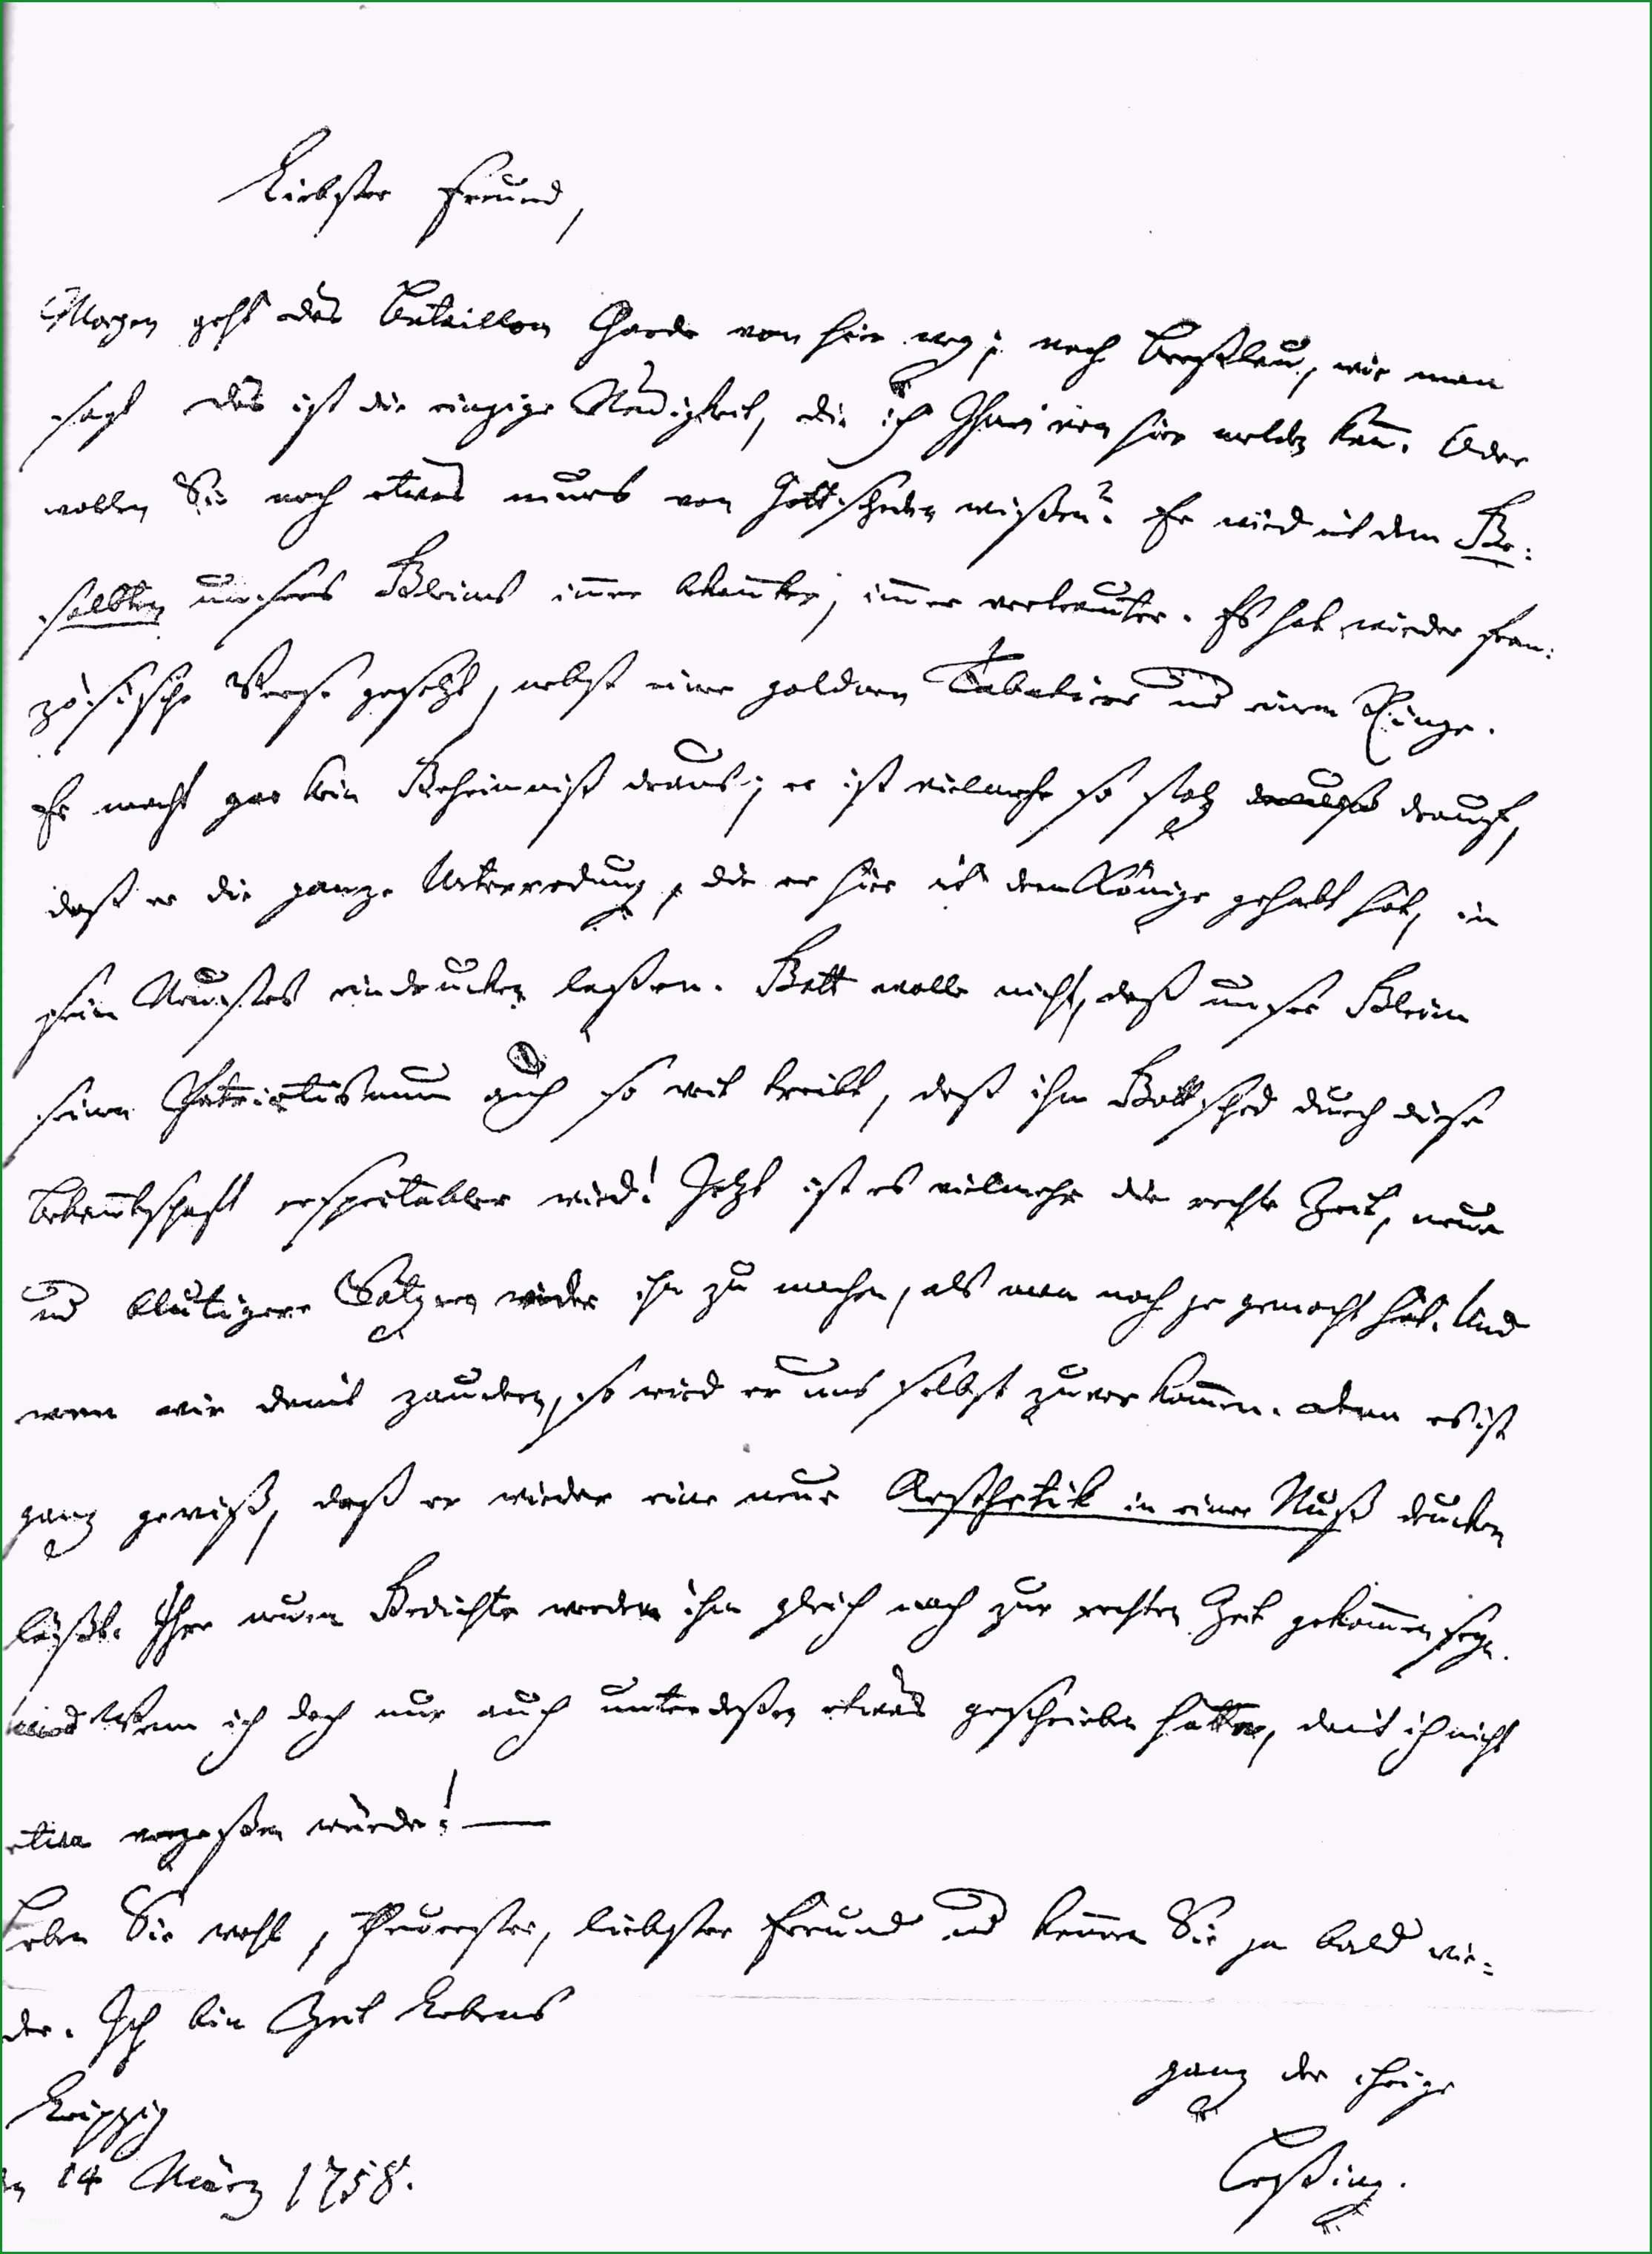 Liebster Freund,
Morgen geht das Bataillon Garde von hier weg; nach Breßlau, wie man
sagt das ist die einzige Neuigkeit, die ich Ihnen von hier melden kañ. Oder
wollen Sie noch etwas neues von Gottscheden wißen? Er wird mit dem Ge:
salbten unsers Gleims im̃er bekañter, im̃er vertrauter. Es hat wieder fran:
zösische Verse gesetzt, nebst einer goldnen Tabatiere und einem Ringe.
Er macht gar kein Geheimniß draus; er ist vielmehr so stolz drauf,
daß er die ganze Unterredung, die er hier mit dem Könige gehabt hat, in
sein Neustes eindrucken laßen. Gott wolle nicht, daß unser Gleim
seinen Patriotismum auch so weit treibt, daß ihm Gottsched durch diese
Bekañtschaft respectabler wird! Jetzt ist es vielmehr die rechte Zeit, neue
und blutigere Satyren wider ihn zu machen, als man noch je gemacht hat. Und
wenn wir damit zaudern, so wird er uns selbst zuvor kom̃en. denn es ist
ganz gewiß, daß er wieder eine neue Aesthetik in einer Nuß drucken
läßt. Ihre neuen Gedichte werden ihm gleich noch zur rechten Zeit gekom̃en seyn.
Wenn ich doch nur auch unterdeßen etwas geschrieben hätte, damit ich nicht
etwa vergeßen würde! —
Leben Sie wohl, theuerster, liebster Freund und kom̃en Sie ja bald wie=
der. Ich bin Zeit Lebens
ganz der ihrige
Leipzig
14 März 1758.
Leßing.